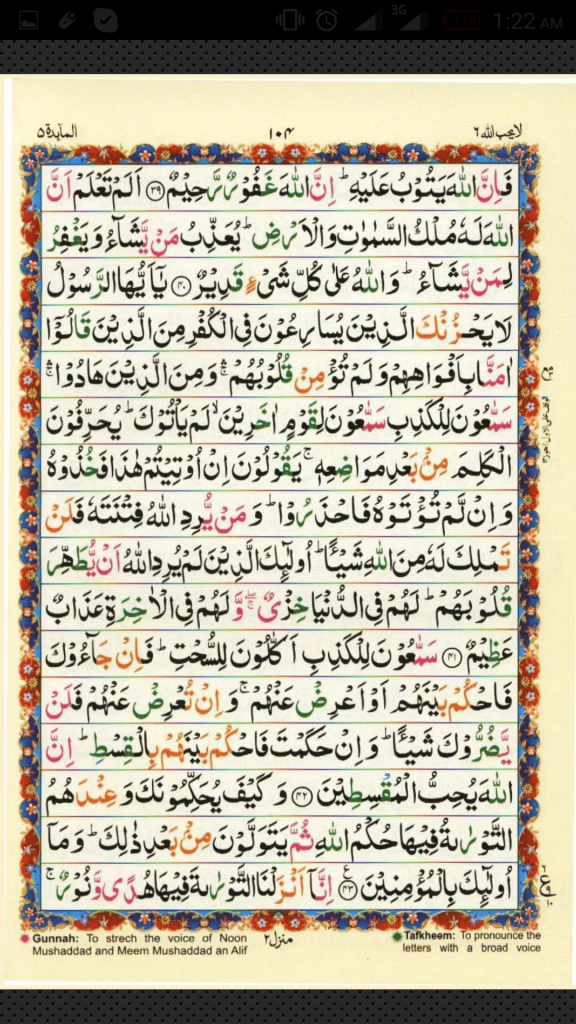 3G 1:22 AM
المآىدة ٥ ١٠٤ لا يحب الله ٦
فَاِنَّ اللّٰهَ يَتُوْبُ عَلَيْهِ ؕ اِنَّ اللّٰهَ غَفُوْرٌ رَّحِيْمٌ ﴿۳۹﴾ اَلَمْ تَعْلَمْ اَنَّ
اللّٰهَ لَهٗ مُلْكُ السَّمٰوٰتِ وَالْاَرْضِ ؕ يُعَذِّبُ مَنْ يَّشَآءُ وَيَغْفِرُ
لِمَنْ يَّشَآءُ ؕ وَاللّٰهُ عَلٰى كُلِّ شَىْءٍ قَدِيْرٌ ﴿۴۰﴾ يٰۤاَيُّهَا الرَّسُوْلُ
لَا يَحْزُنْكَ الَّذِيْنَ يُسَارِعُوْنَ فِى الْكُفْرِ مِنَ الَّذِيْنَ قَالُوْۤا
اٰمَنَّا بِاَفْوَاهِهِمْ وَلَمْ تُؤْمِنْ قُلُوْبُهُمْ ۛۚ وَمِنَ الَّذِيْنَ هَادُوْا ۛۚ
سَمّٰعُوْنَ لِلْكَذِبِ سَمّٰعُوْنَ لِقَوْمٍ اٰخَرِيْنَ ۙ لَمْ يَاْتُوْكَ ؕ يُحَرِّفُوْنَ
الْكَلِمَ مِنْۢ بَعْدِ مَوَاضِعِهٖ ۚ يَقُوْلُوْنَ اِنْ اُوْتِيْتُمْ هٰذَا فَخُذُوْهُ
وَاِنْ لَّمْ تُؤْتَوْهُ فَاحْذَرُوْا ؕ وَمَنْ يُّرِدِ اللّٰهُ فِتْنَتَهٗ فَلَنْ
تَمْلِكَ لَهٗ مِنَ اللّٰهِ شَيْـًٔا ؕ اُولٰٓٮِٕكَ الَّذِيْنَ لَمْ يُرِدِ اللّٰهُ اَنْ يُّطَهِّرَ
قُلُوْبَهُمْ ؕ لَهُمْ فِى الدُّنْيَا خِزْىٌ ۖۚ وَّلَهُمْ فِى الْاٰخِرَةِ عَذَابٌ
عَظِيْمٌ ﴿۴۱﴾ سَمّٰعُوْنَ لِلْكَذِبِ اَكّٰلُوْنَ لِلسُّحْتِ ؕ فَاِنْ جَآءُوْكَ
فَاحْكُمْ بَيْنَهُمْ اَوْ اَعْرِضْ عَنْهُمْ ۚ وَاِنْ تُعْرِضْ عَنْهُمْ فَلَنْ
يَّضُرُّوْكَ شَيْـًٔا ؕ وَاِنْ حَكَمْتَ فَاحْكُمْ بَيْنَهُمْ بِالْقِسْطِ ؕ اِنَّ
اللّٰهَ يُحِبُّ الْمُقْسِطِيْنَ ﴿۴۲﴾ وَكَيْفَ يُحَكِّمُوْنَكَ وَعِنْدَهُمُ
التَّوْرٰٮةُ فِيْهَا حُكْمُ اللّٰهِ ثُمَّ يَتَوَلَّوْنَ مِنْۢ بَعْدِ ذٰلِكَ ؕ وَمَاۤ
اُولٰٓٮِٕكَ بِالْمُؤْمِنِيْنَ ﴿۴۳﴾ اِنَّاۤ اَنْزَلْنَا التَّوْرٰٮةَ فِيْهَا هُدًى وَّنُوْرٌ ۚ
Gunnah: To strech the voice of Noon
Mushaddad and Meem Mushaddad an Alif
منزل ٢
Tafkheem: To pronounce the
letters with a broad voice